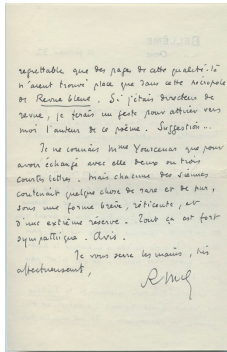 regrettable que des pages de cette qualité-là
n'aient trouvé place que dans cette nécropole
de Revue bleue. Si j'étais directeur de
revue, je ferais un geste pour attirer vers
moi l'auteur de ce poème. Suggestion...
Je ne connais Mme Yourcenar que pour
avoir échangé avec elle deux ou trois
courtes lettres. Mais chacune des siennes
contenait quelque chose de rare et de pur,
sous une forme brève, réticente, et
d'une extrême réserve. Tout ça est fort
sympathique. Avis.
Je vous serre les mains, très
affectueusement,